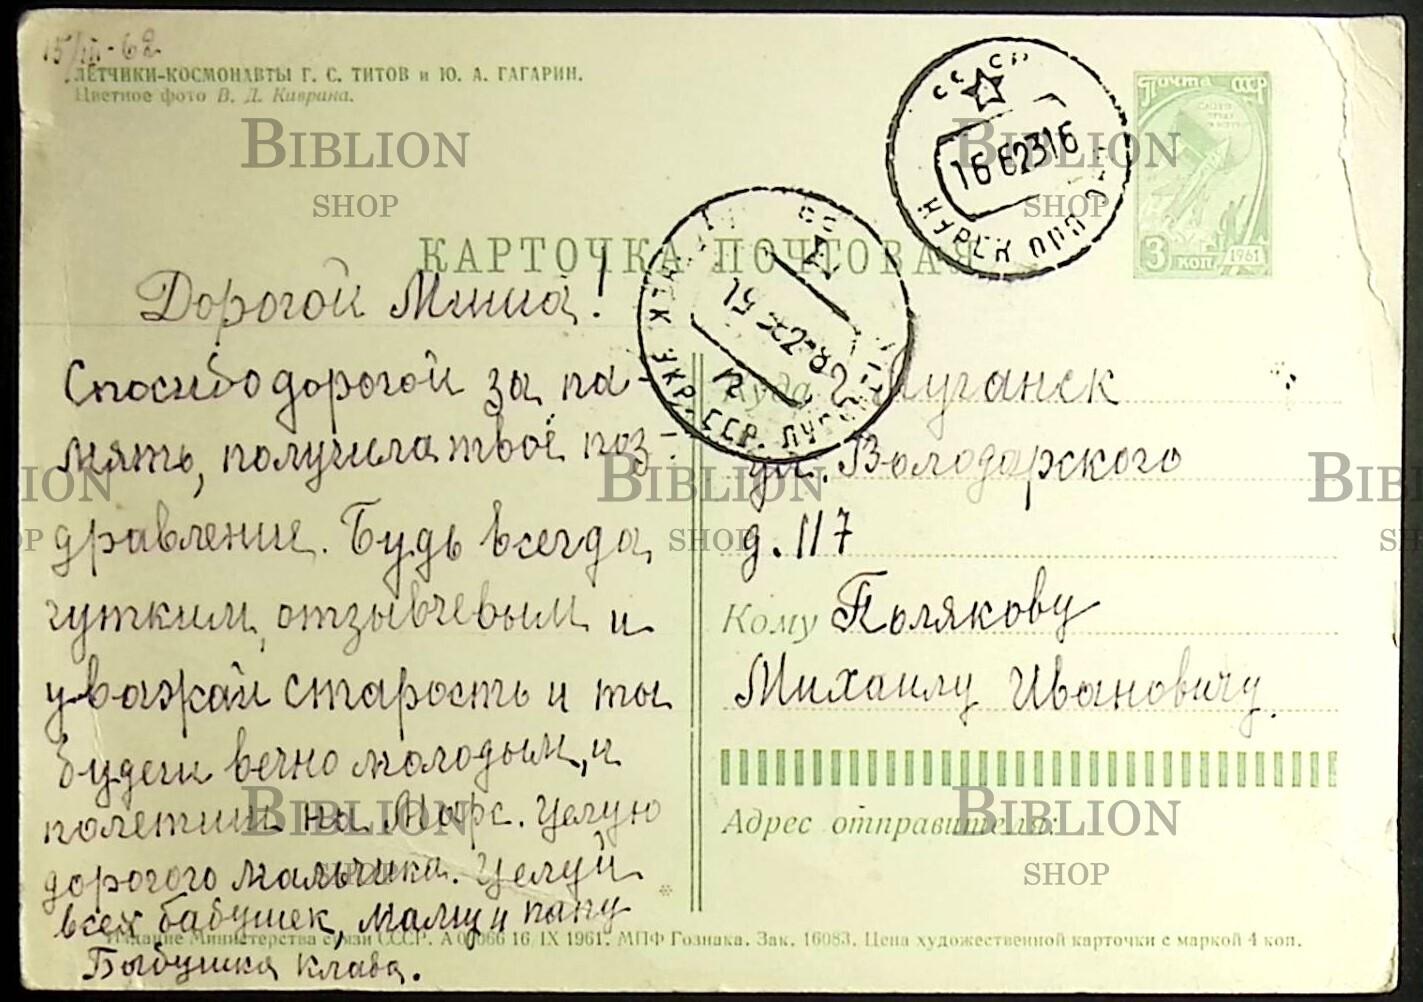 15/III-62
ЛЕТЧИКИ-КОСМОНАВТЫ Г. С. ТИТОВ и Ю. А. ГАГАРИН.
Цветное фото В. Д. Киврина.
КАРТОЧКА ПОЧТОВАЯ
Почта СССР
3 коп
1961
СССР
16 6 23 16
КУРСК
УКР. ССР. ЛУГАНСК
Дорогой Миша!
Спосибо дорогой за па-
мять, получила твоё поз-
дравление. Будь всегда
чутким, отзывчевым и
уважай старость и ты
будеш вечно молодым, и
полетиш на Марс. Целую
дорогого мальчика. Целуй
всех бабушек, маму и папу
Бабушка Клава.
Куда г. Луганск
ул. Володарского
д. 117
Кому Полякову
Михаилу Ивановичу.
Адрес отправителя:
Издание Министерства связи СССР. А 0 066 16/IX 1961. МПФ Гознака. Зак. 16083. Цена художественной карточки с маркой 4 коп.
BIBLION SHOP
BIBLION SHOP
BIBLION SHOP
BIBLION SHOP
BIBLION SHOP